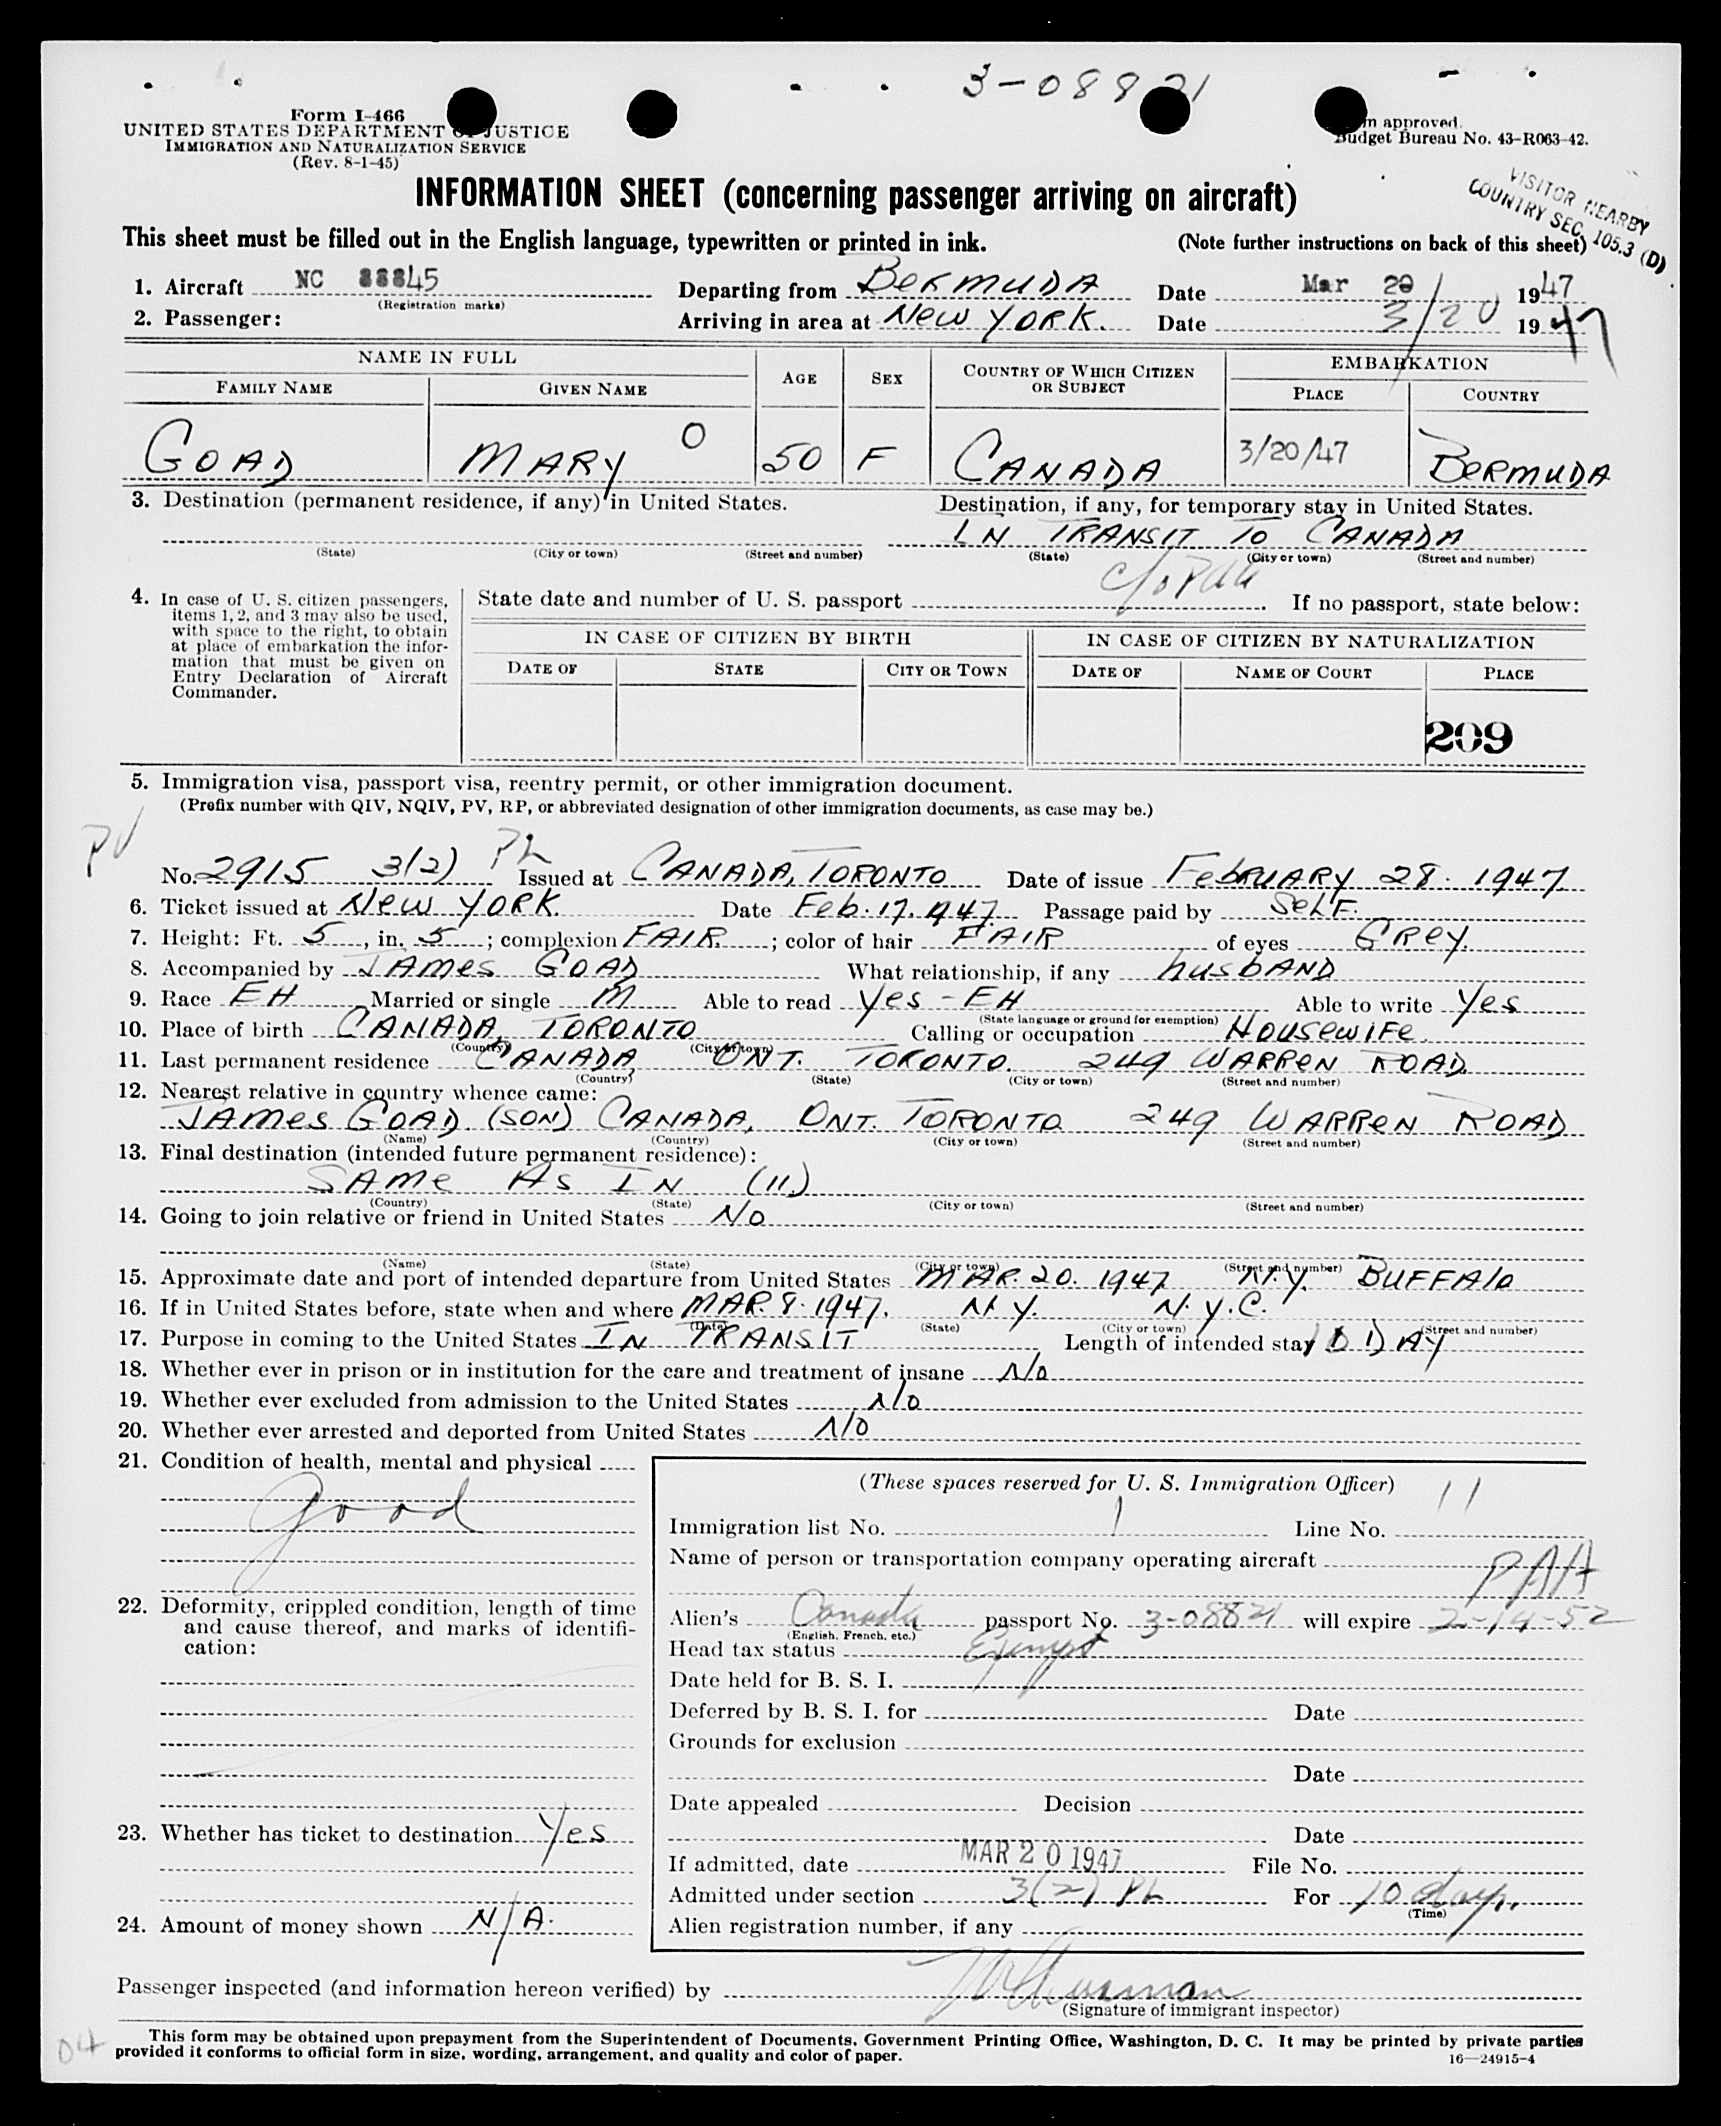 3-08821
Form I-466
UNITED STATES DEPARTMENT OF JUSTICE
IMMIGRATION AND NATURALIZATION SERVICE
(Rev. 8-1-45)
approved.
Budget Bureau No. 43-R063-42.
VISITOR NEARBY
COUNTRY SEC. 105.3 (D)
INFORMATION SHEET (concerning passenger arriving on aircraft)
This sheet must be filled out in the English language, typewritten or printed in ink. (Note further instructions on back of this sheet)
1. Aircraft NC 88845 Departing from BERMUDA Date Mar 20 1947
(Registration marks)
2. Passenger: Arriving in area at NEW YORK. Date 3/20 1947
NAME IN FULL AGE SEX COUNTRY OF WHICH CITIZEN OR SUBJECT EMBARKATION
FAMILY NAME GIVEN NAME PLACE COUNTRY
GOAD MARY O 50 F CANADA 3/20/47 BERMUDA
3. Destination (permanent residence, if any) in United States. Destination, if any, for temporary stay in United States.
IN TRANSIT TO CANADA
(State) (City or town) (Street and number) (State) (City or town) (Street and number)
c/o PAA
4. In case of U. S. citizen passengers, items 1, 2, and 3 may also be used, with space to the right, to obtain at place of embarkation the information that must be given on Entry Declaration of Aircraft Commander.
State date and number of U. S. passport If no passport, state below:
IN CASE OF CITIZEN BY BIRTH IN CASE OF CITIZEN BY NATURALIZATION
DATE OF STATE CITY OR TOWN DATE OF NAME OF COURT PLACE
209
5. Immigration visa, passport visa, reentry permit, or other immigration document.
(Prefix number with QIV, NQIV, PV, RP, or abbreviated designation of other immigration documents, as case may be.)
PV
No. 2915 3(2) PL Issued at CANADA, TORONTO Date of issue FEBRUARY 28. 1947.
6. Ticket issued at NEW YORK. Date Feb. 17. 1947. Passage paid by SELF.
7. Height: Ft. 5, in. 5; complexion FAIR.; color of hair FAIR of eyes GREY.
8. Accompanied by JAMES GOAD What relationship, if any HUSBAND
9. Race EH Married or single M Able to read Yes - EH Able to write Yes
(State language or ground for exemption)
10. Place of birth CANADA, TORONTO Calling or occupation HOUSEWIFE.
(Country) (City or town)
11. Last permanent residence CANADA, ONT. TORONTO. 249 WARREN ROAD.
(Country) (State) (City or town) (Street and number)
12. Nearest relative in country whence came:
JAMES GOAD (SON) CANADA, ONT. TORONTO 249 WARREN ROAD
(Name) (Country) (City or town) (Street and number)
13. Final destination (intended future permanent residence):
SAME AS IN (11.)
(Country) (State) (City or town) (Street and number)
14. Going to join relative or friend in United States NO
(Name) (State) (City or town) (Street and number)
15. Approximate date and port of intended departure from United States MAR. 20. 1947 N.Y. BUFFALO
16. If in United States before, state when and where MAR. 8. 1947. N.Y. N.Y.C.
(Date) (State) (City or town) (Street and number)
17. Purpose in coming to the United States IN TRANSIT Length of intended stay 1 DAY
18. Whether ever in prison or in institution for the care and treatment of insane NO
19. Whether ever excluded from admission to the United States NO
20. Whether ever arrested and deported from United States NO
21. Condition of health, mental and physical
good
22. Deformity, crippled condition, length of time and cause thereof, and marks of identification:
23. Whether has ticket to destination Yes
24. Amount of money shown N/A.
(These spaces reserved for U. S. Immigration Officer)
Immigration list No. 1 Line No. 11
Name of person or transportation company operating aircraft PAA
Alien's Canada passport No. 3-08821 will expire 2-14-52
(English, French, etc.)
Head tax status Exempt
Date held for B. S. I.
Deferred by B. S. I. for Date
Grounds for exclusion
Date
Date appealed Decision
Date
If admitted, date MAR 20 1947 File No.
Admitted under section 3(2) PL For 10 days.
(Time)
Alien registration number, if any
Passenger inspected (and information hereon verified) by
(Signature of immigrant inspector)
This form may be obtained upon prepayment from the Superintendent of Documents, Government Printing Office, Washington, D. C. It may be printed by private parties
provided it conforms to official form in size, wording, arrangement, and quality and color of paper.
16—24915-4
04